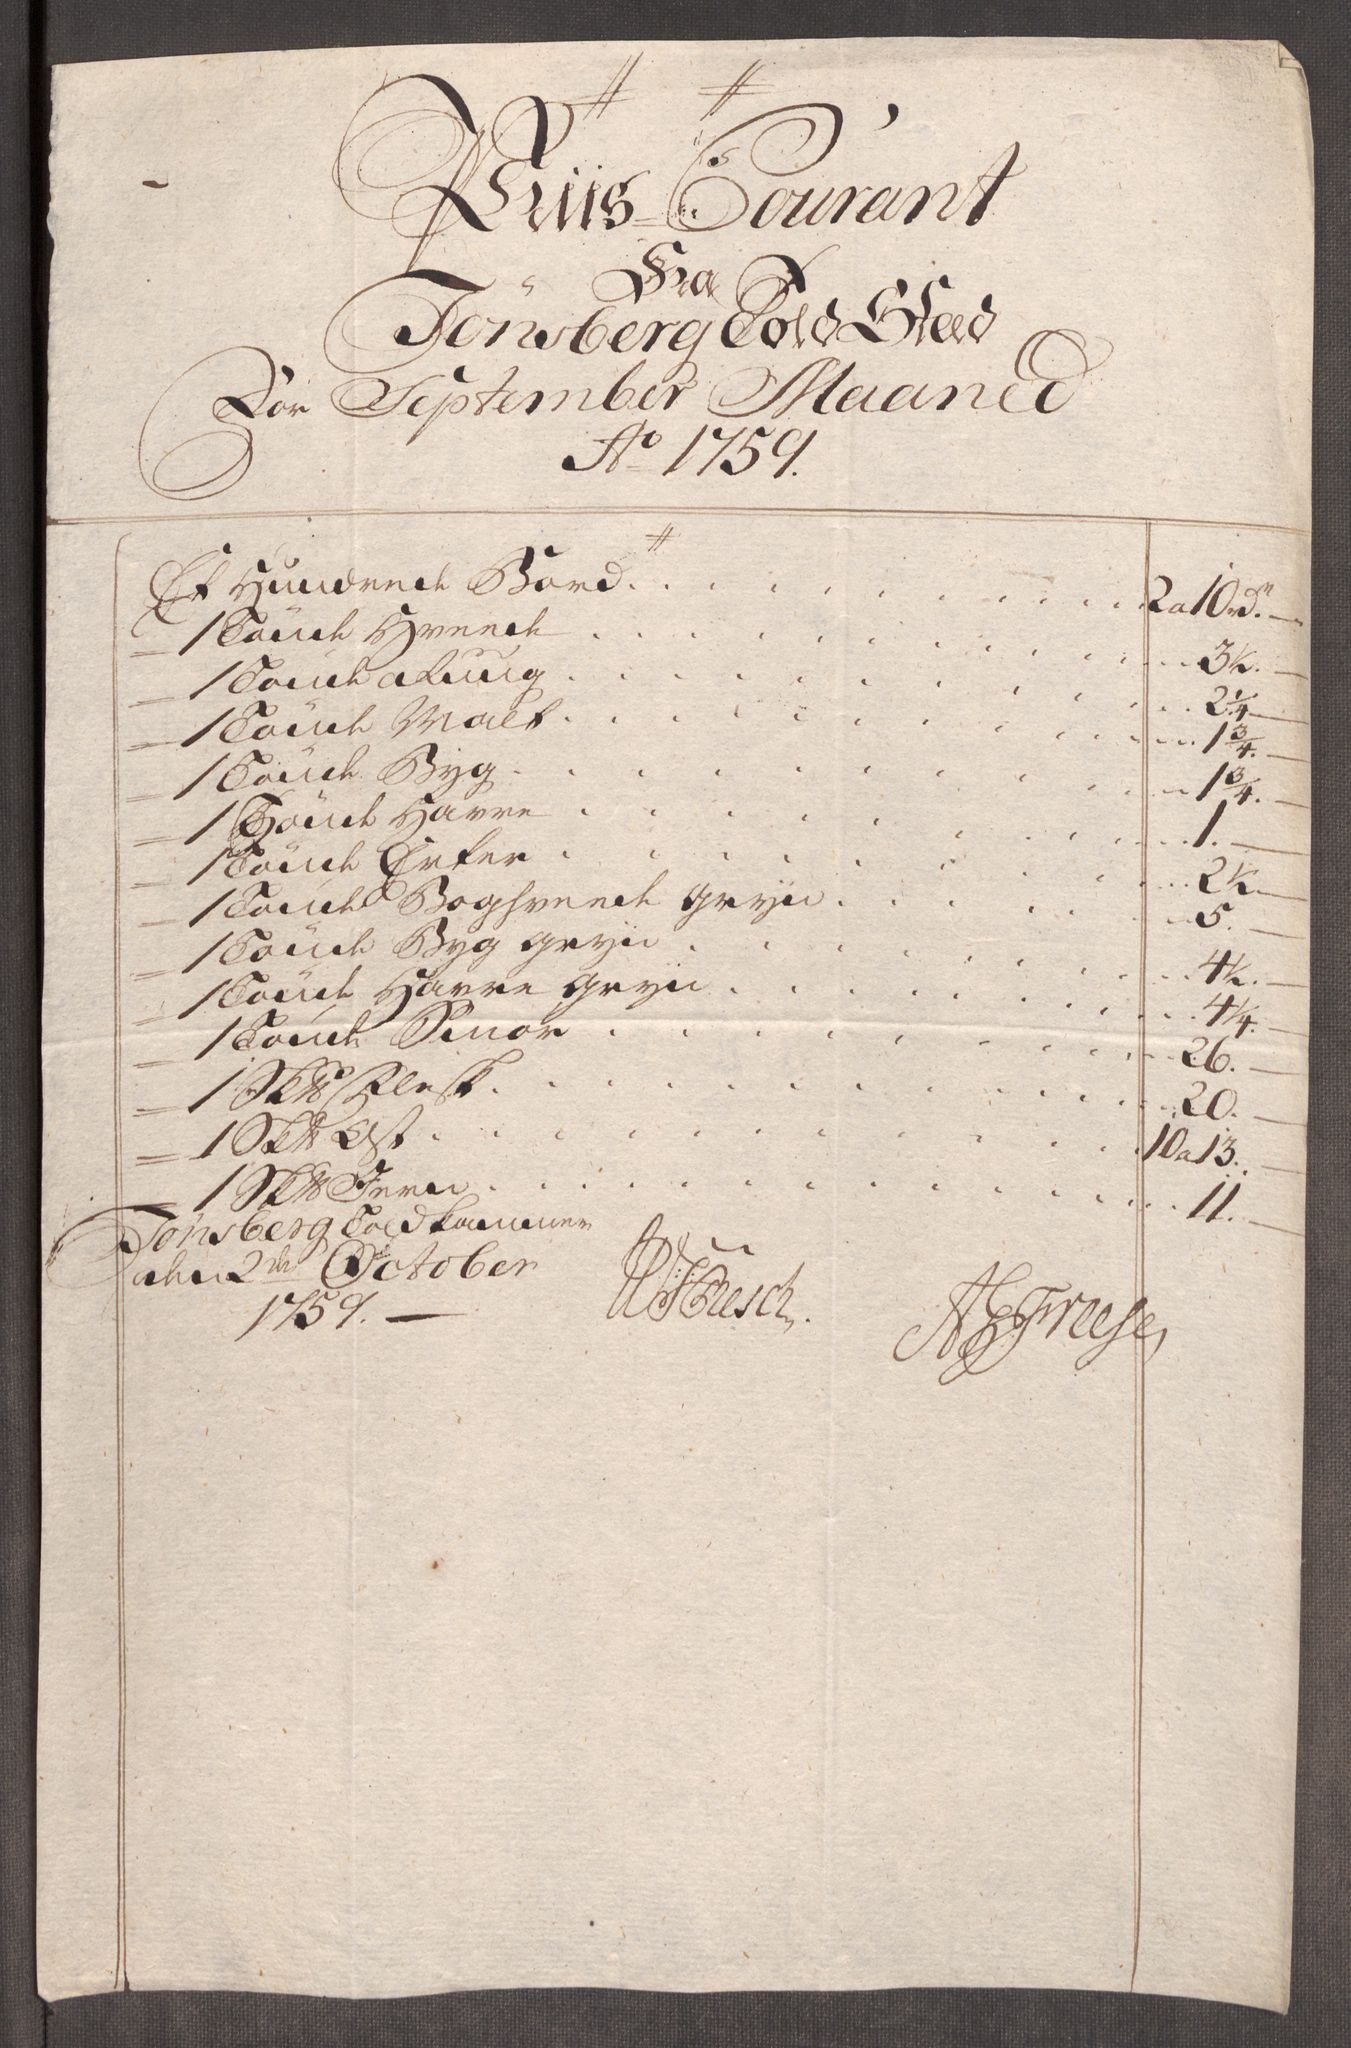 Priis-Courant
Fra
Tönsberg Told Stæd
For September Maaned
Ao 1759.
Et Hundrede Bord 2 a 10 rd.
1 Tönde Hveede 3½.
1 Tönde Rug 2¼
1 Tönde Malt 1¾.
1 Tönde Byg 1¾.
1 Tönde Havre 1.
1 Tönde Erter 2½
1 Tönde Boghveede gryn 5.
1 Tönde Byg gryn 4½.
1 Tönde Havre gryn 4¼.
1 Tönde Smör 26.
1 Sk℔ Flesk 20.
1 Sk℔ Ost 10 a 13.
1 Sk℔ Jern 11.
Tönsberg Toldkammer
den 2den October
1759.